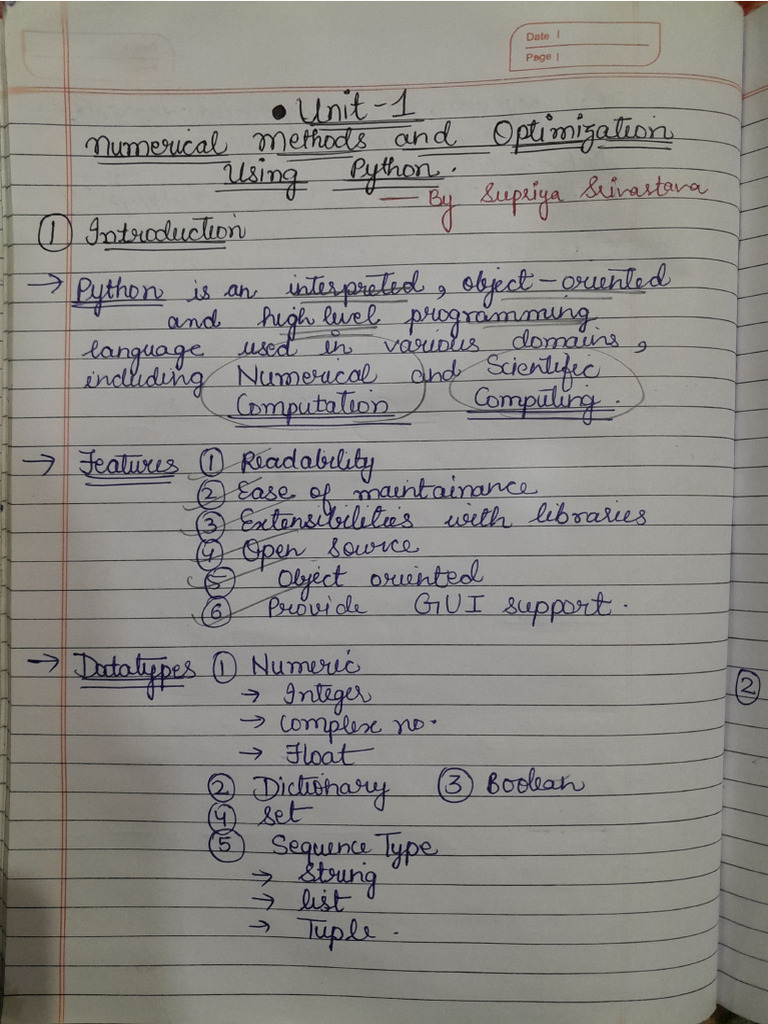 Date |
Page |
• Unit-1
Numerical Methods and Optimization
Using Python.
— By Supriya Srivastava
① Introduction
→ Python is an interpreted, object-oriented
and high level programming
language used in various domains,
including Numerical and Scientific
Computation Computing.
→ Features ① Readability
② Ease of maintainance
③ Extensibilities with libraries
④ Open source
⑤ Object oriented
⑥ Provide GUI support.
→ Datatypes ① Numeric
→ Integer
→ Complex no.
→ Float
② Dictionary ③ Boolean
④ Set
⑤ Sequence Type
→ String
→ list
→ Tuple.
②